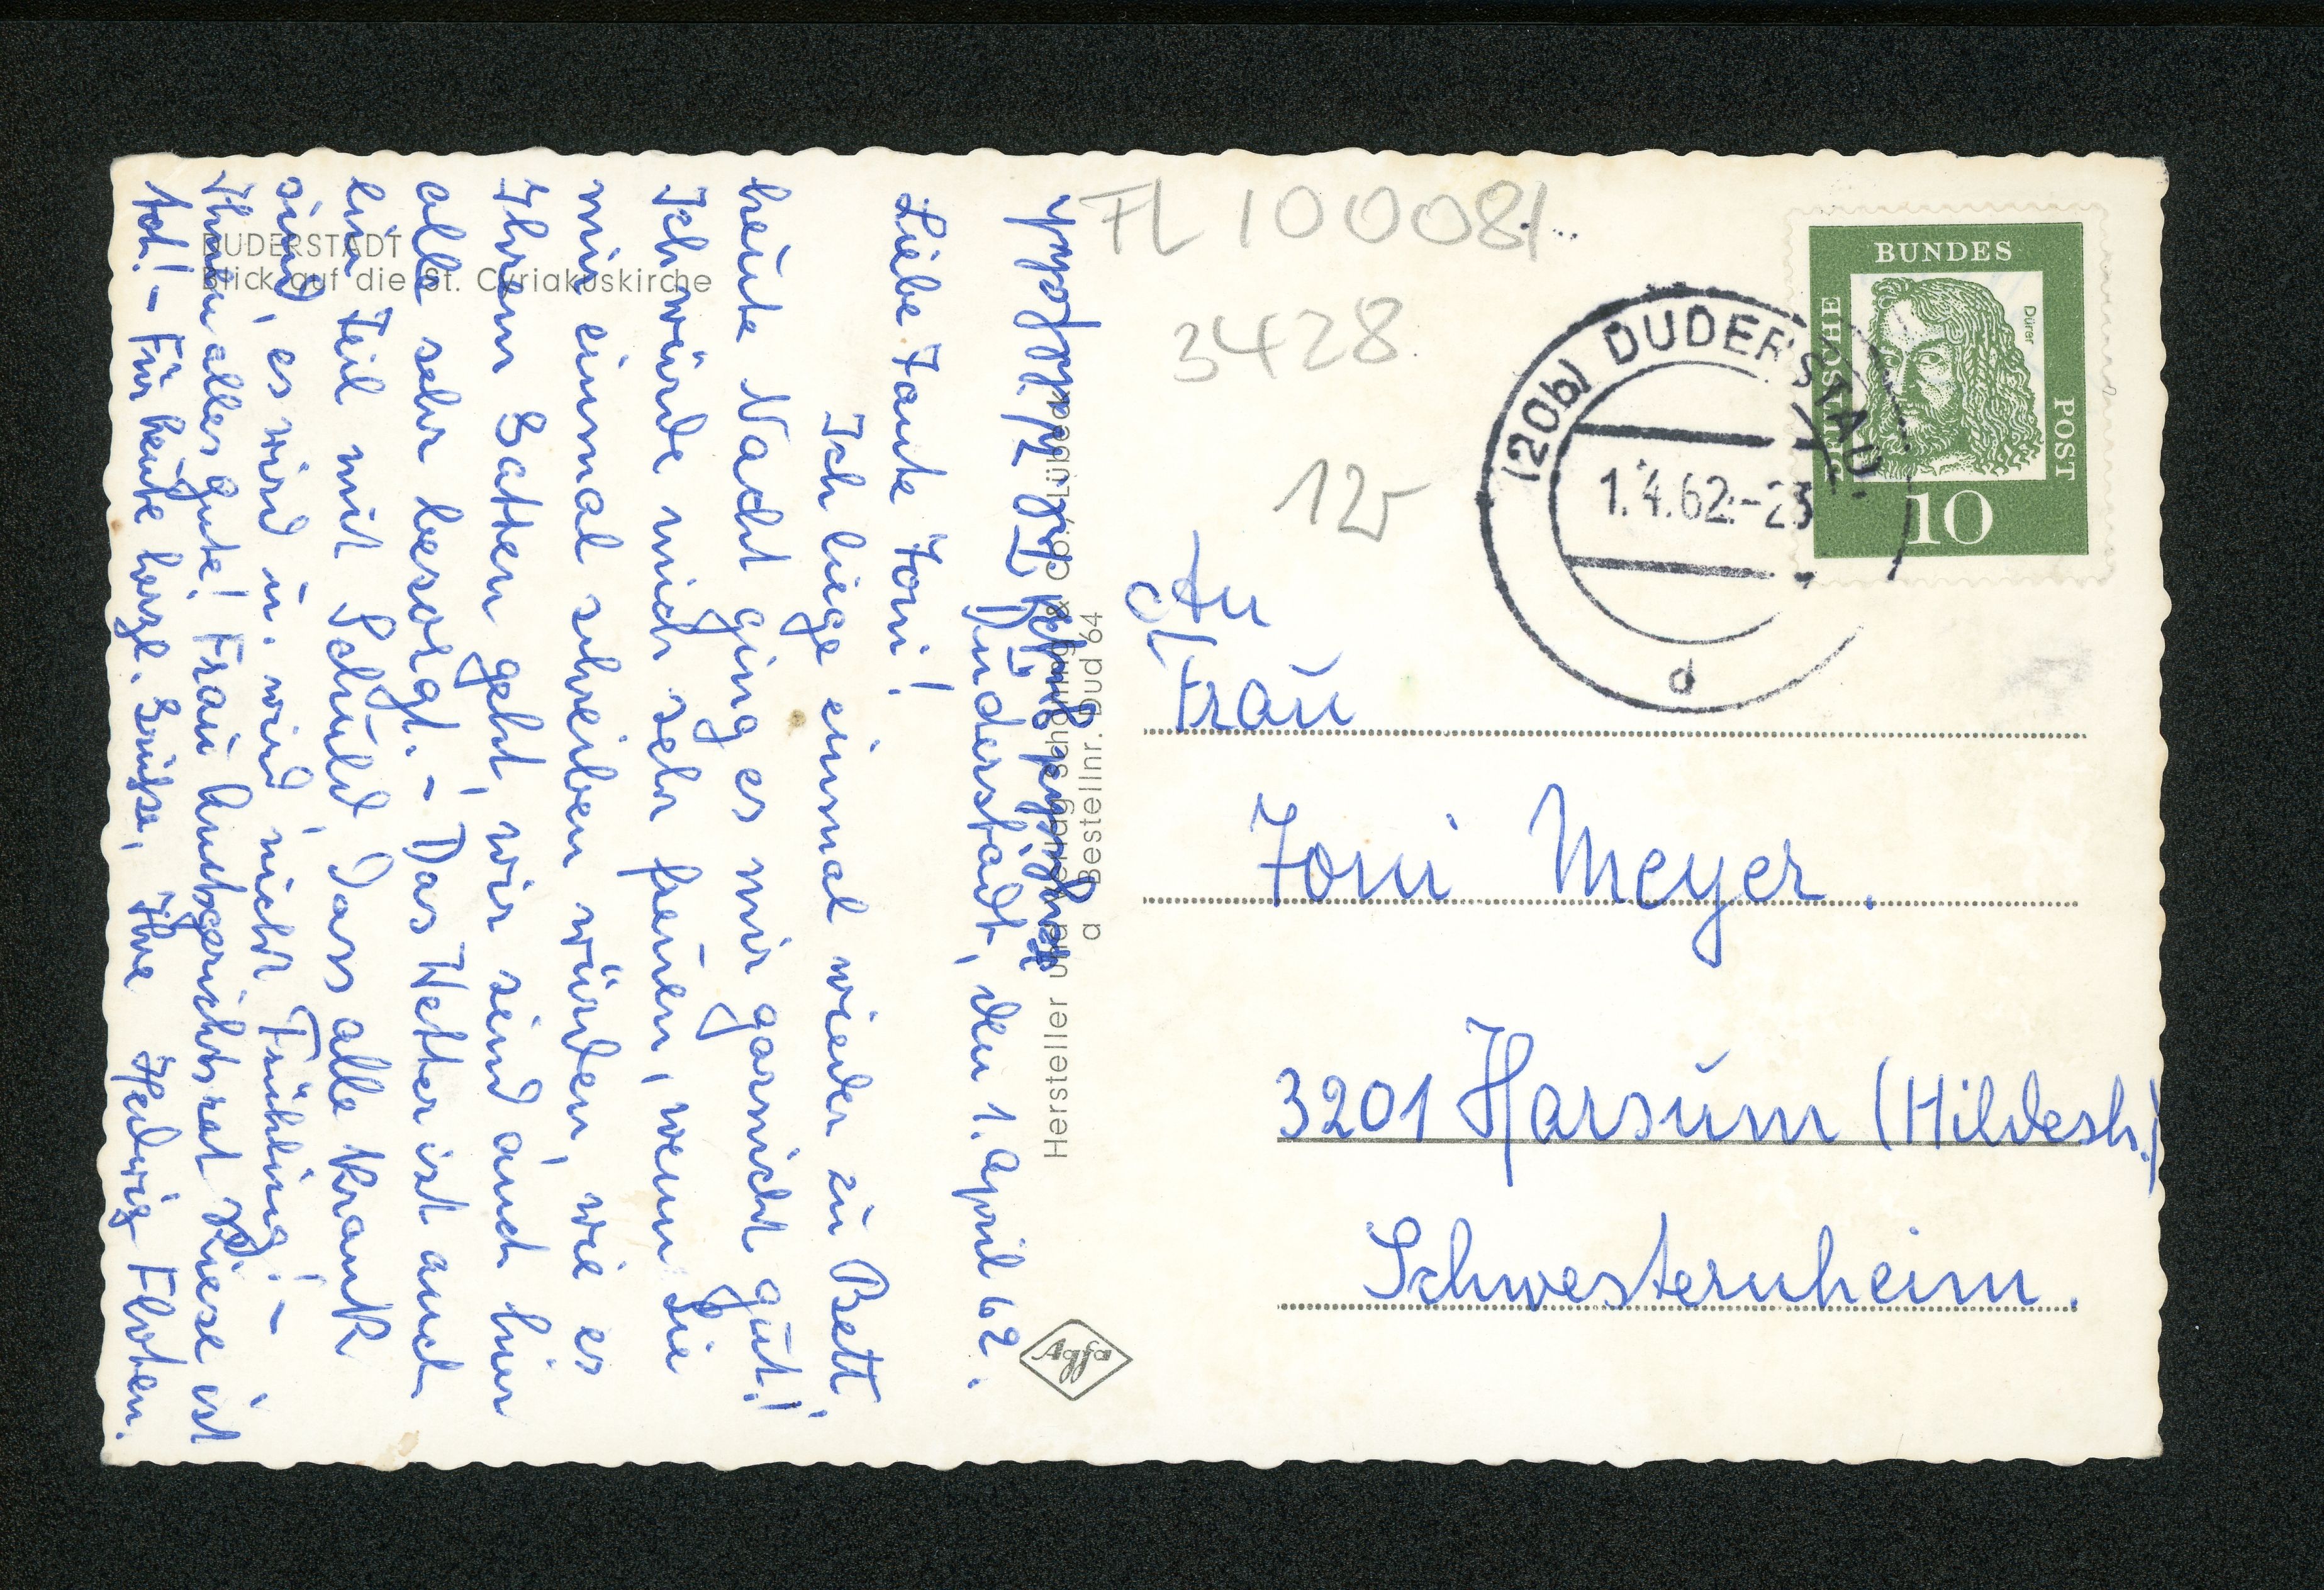 DUDERSTADT
Blick auf die St. Cyriakuskirche
Duderstadt, den 1. April 62.
Liebe Tante Toni!
Ich liege einmal wieder zu Bett
heute Nacht ging es mir garnicht gut!
Ich würde mich sehr freuen, wenn Sie
mir einmal schreiben würden, wie es
Ihrem Gatten geht, wir sind auch hier
alle sehr besorgt. - Das Wetter ist auch
ein Teil mit Schuld, dass alle krank
sind, es wird u. wird nicht Frühling! -
Ihnen alles gute! Frau Amtsgerichtsrat Kiese ist
tot! - Für heute herzl. Grüße, Ihre Hedwig Floten.
Hersteller und Verlag Schöning & Co., Lübeck
a Bestellnr. Dud 64
Agfa
FL 100081
3428
12,-
BUNDES
POST
DEUTSCHE
Dürer
10
(20b) DUDERSTADT
1.4.62.-23
d
An
Frau
Toni Meyer.
3201 Harsum (Hildesh.)
Schwesternheim.